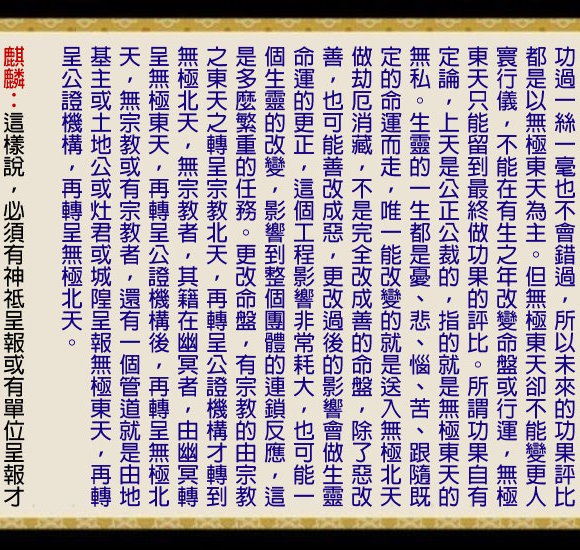 功過一絲一毫也不會錯過，所以未來的功果評比
都是以無極東天為主。但無極東天卻不能變更人
寰行儀，不能在有生之年改變命盤或行運，無極
東天只能留到最終做功果的評比。所謂功果自有
定論，上天是公正公裁的，指的就是無極東天的
無私。生靈的一生都是憂、悲、惱、苦、跟隨既
定的命運而走，唯一能改變的就是送入無極北天
做劫厄消藏，不是完全改成善的命盤，除了惡改
善，也可能善改成惡，更改過後的影響會做生靈
命運的更正，這個工程影響非常耗大，也可能一
個生靈的改變，影響到整個團體的連鎖反應，這
是多麼繁重的任務。更改命盤，有宗教的由宗教
之東天之轉呈宗教北天，再轉呈公證機構才轉到
無極北天，無宗教者，其籍在幽冥者，由幽冥轉
呈無極東天，再轉呈公證機構後，再轉呈無極北
天，無宗教或有宗教者，還有一個管道就是由地
基主或土地公或灶君或城隍呈報無極東天，再轉
呈公證機構，再轉呈無極北天。
麒麟：這樣說，必須有神祇呈報或有單位呈報才